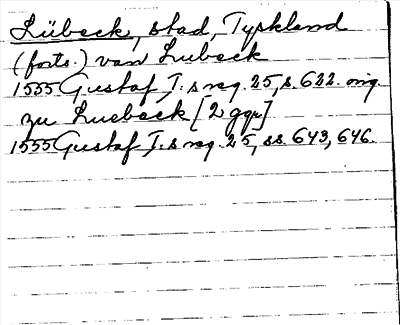 Lübeck, stad, Tyskland
(forts.) van Lubeck
1555 Gustaf I:s reg. 25, s. 622. orig.
zu Luebeck [2 ggr]
1555 Gustaf I:s reg. 25, ss. 643, 646.